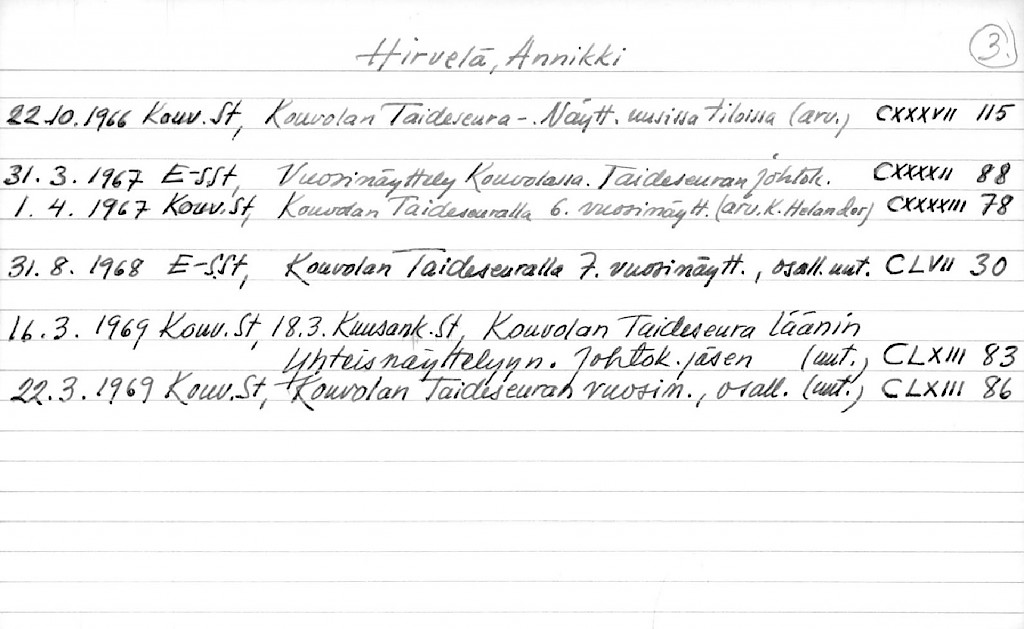 Hirvelä, Annikki
3.
22.10.1966 Kouv.St, Kouvolan Taideseura-. Näytt. uusissa tiloissa (arv.) CXXXVII 115
31. 3. 1967 E-SSt, Vuosinäyttely Kouvolassa. Taideseuran johtok. CXXXXII 88
1. 4. 1967 Kouv.St, Kouvolan Taideseuralla 6. vuosinäytt. (arv. K. Helander) CXXXXIII 78
31. 8. 1968 E-S.St, Kouvolan Taideseuralla 7. vuosinäytt., osall. uut. CLVII 30
16. 3. 1969 Kouv. St, 18.3. Kuusank. St, Kouvolan Taideseura läänin
yhteisnäyttelyyn. Johtok. jäsen (uut.) CLXIII 83
22.3. 1969 Kouv.St, Kouvolan Taideseuran vuosin., osall. (uut.) CLXIII 86